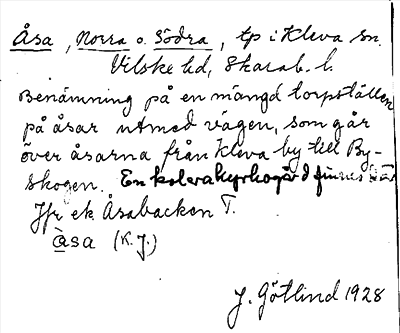 Åsa, Norra o. Södra, tp i Kleva sn.
Vilske hd, Skarab. l.
Benämning på en mängd torpställen
på åsar utmed vägen, som går
över åsarna från Kleva by till By-
skogen. En kolerakyrkogård finnes här
Jfr ek. Åsabacken T.
åsa (K.J.)
J. Götlind 1928